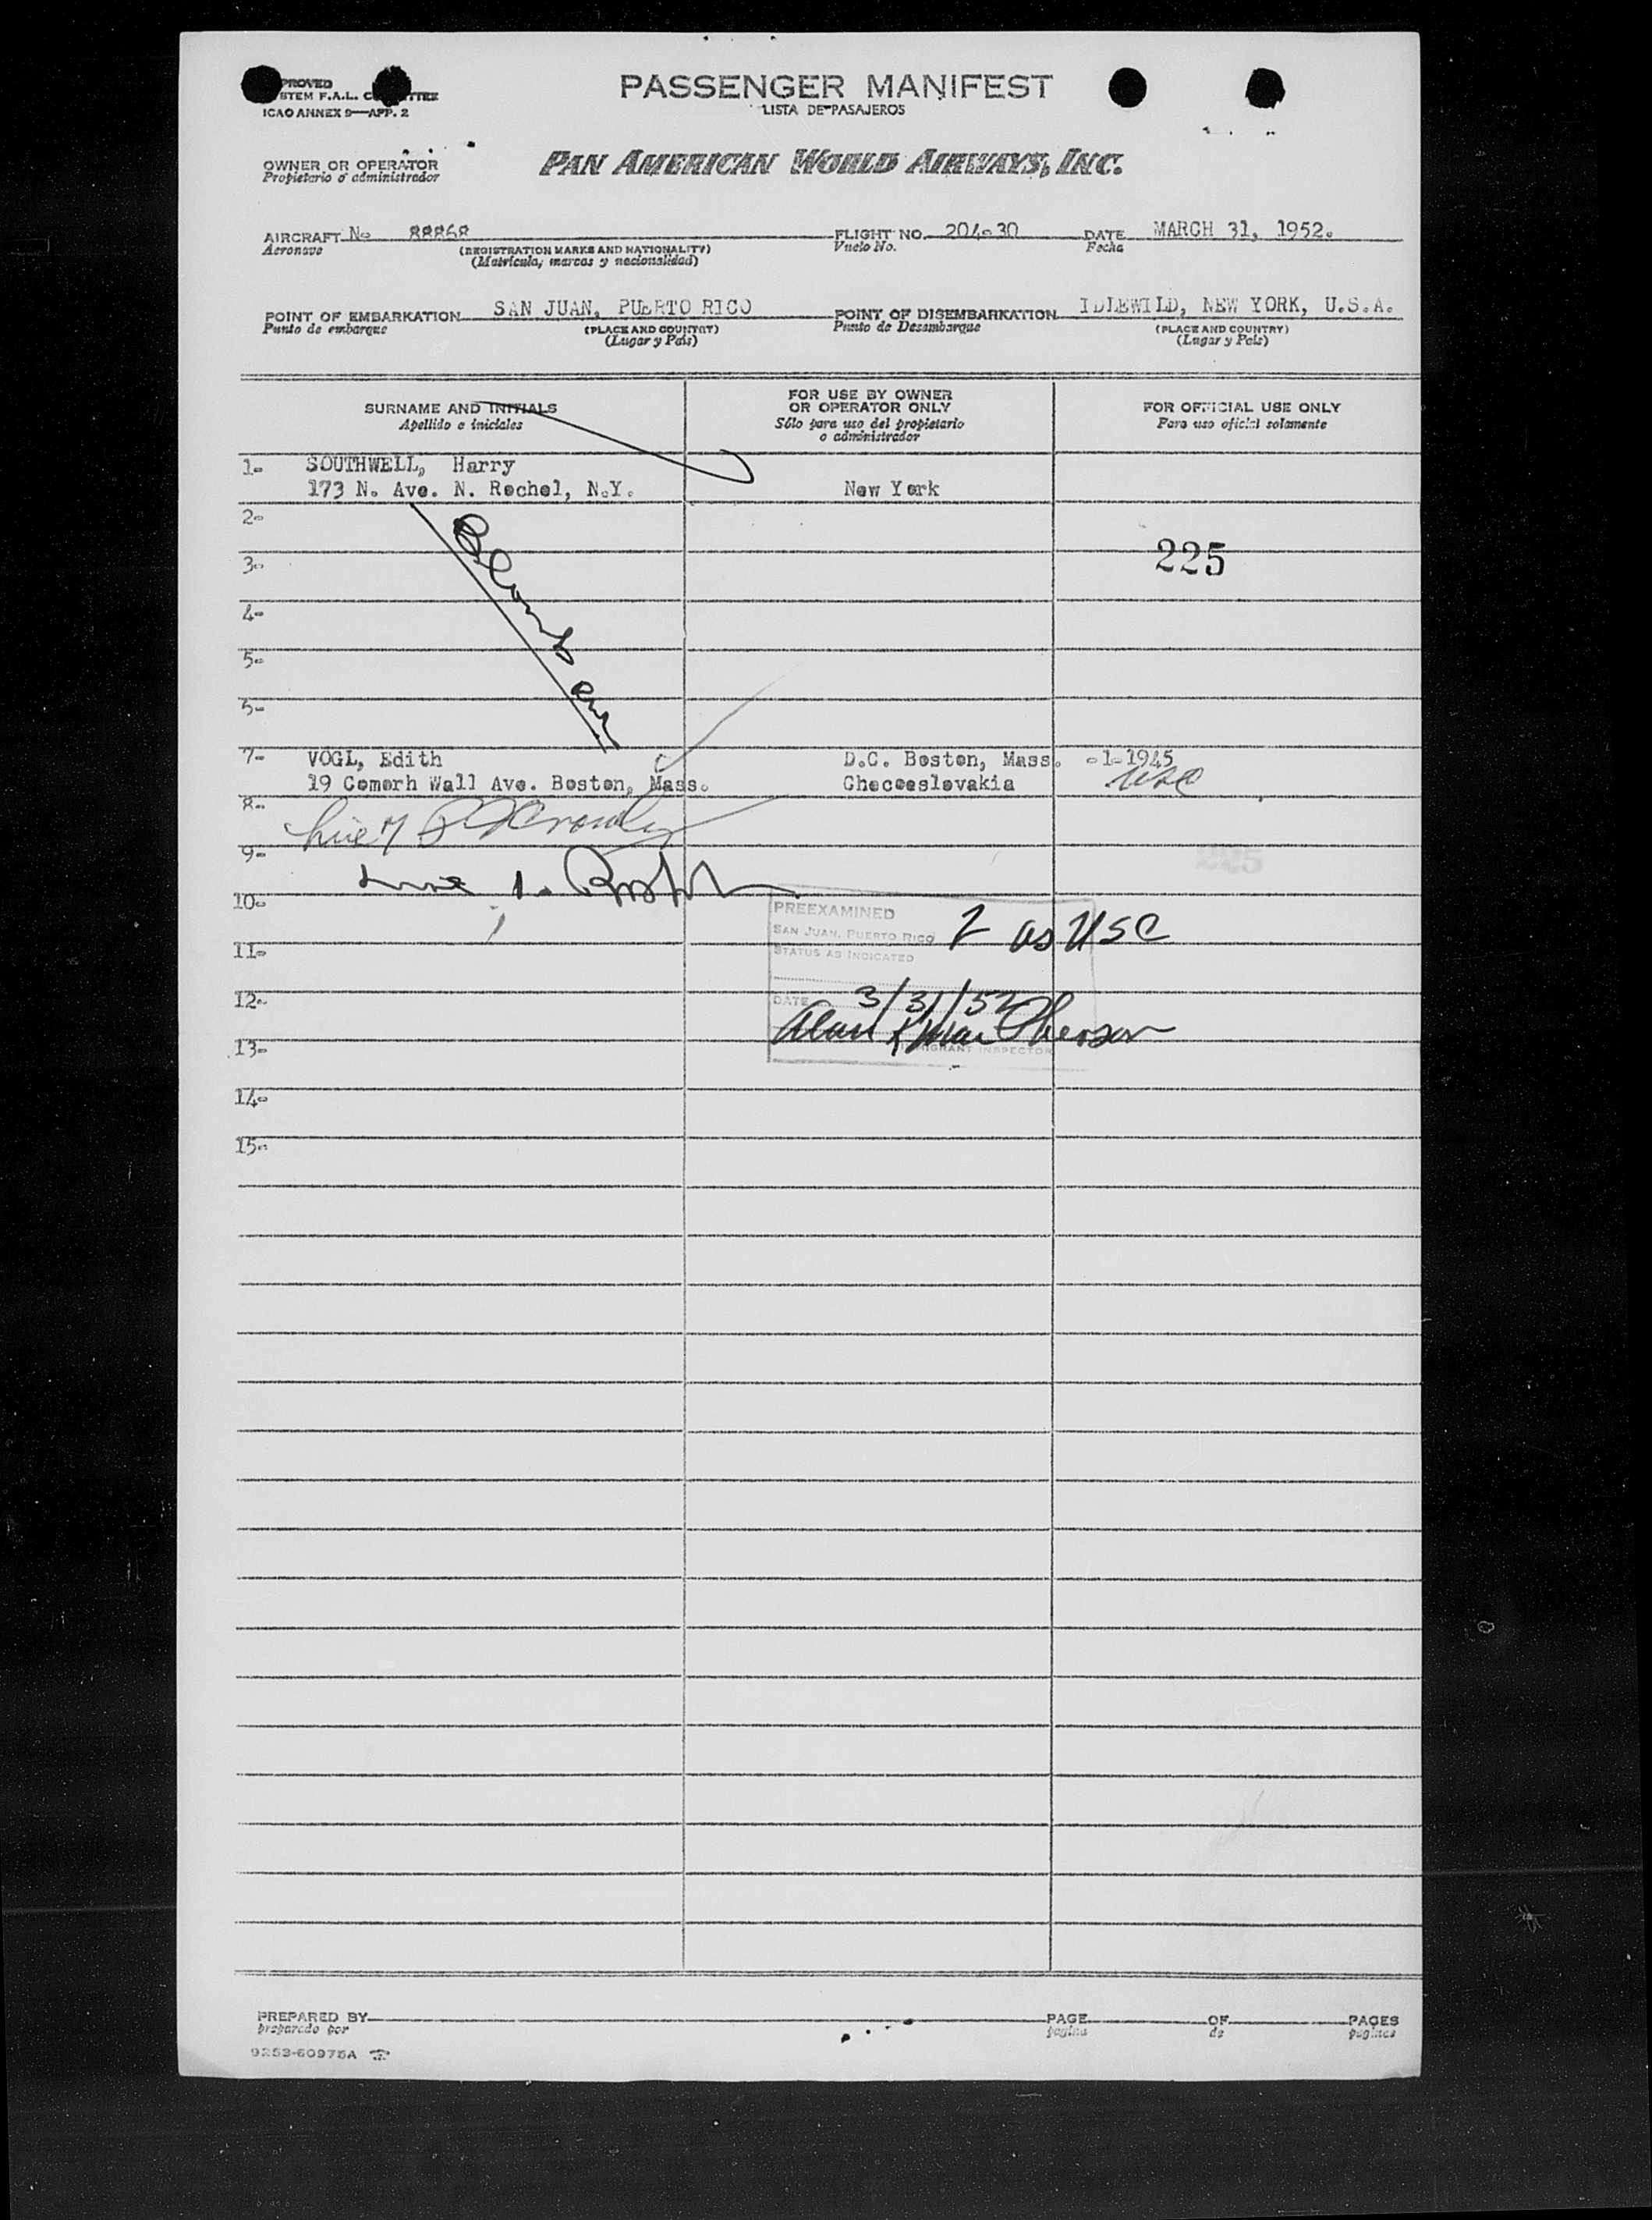 PROVED
STEM F.A.L. C TTEE
ICAO ANNEX 9—APP. 2
PASSENGER MANIFEST
LISTA DE PASAJEROS
OWNER OR OPERATOR
Propietario ó administrador
PAN AMERICAN WORLD AIRWAYS, INC.
AIRCRAFT No 88868
Aeronave
(REGISTRATION MARKS AND NATIONALITY)
(Matrícula, marcas y nacionalidad)
FLIGHT NO. 204-30
Vuelo No.
DATE MARCH 31, 1952.
Fecha
POINT OF EMBARKATION SAN JUAN, PUERTO RICO
Punto de embarque
(PLACE AND COUNTRY)
(Lugar y País)
POINT OF DISEMBARKATION IDLEWILD, NEW YORK, U.S.A.
Punto de Desembarque
(PLACE AND COUNTRY)
(Lugar y País)
SURNAME AND INITIALS
Apellido e iniciales
FOR USE BY OWNER
OR OPERATOR ONLY
Sólo para uso del propietario
o administrador
FOR OFFICIAL USE ONLY
Para uso oficial solamente
1- SOUTHWELL, Harry
173 N. Ave. N. Rochel, N.Y. New York
2-
225
3-
4-
5-
5-
7- VOGL, Edith D.C. Boston, Mass. -1-1945
19 Comorh Wall Ave. Boston, Mass. Checoeslovakia USC
8-
Line 7
9-
Line 1-
10-
PREEXAMINED
SAN JUAN, PUERTO RICO 2 as USC
11-
STATUS AS INDICATED
12-
DATE 3/31/52
Alan K MacPherson
13-
IMMIGRANT INSPECTOR
14-
15-
PREPARED BY
preparado por
PAGE OF PAGES
página de páginas
9253-60975A